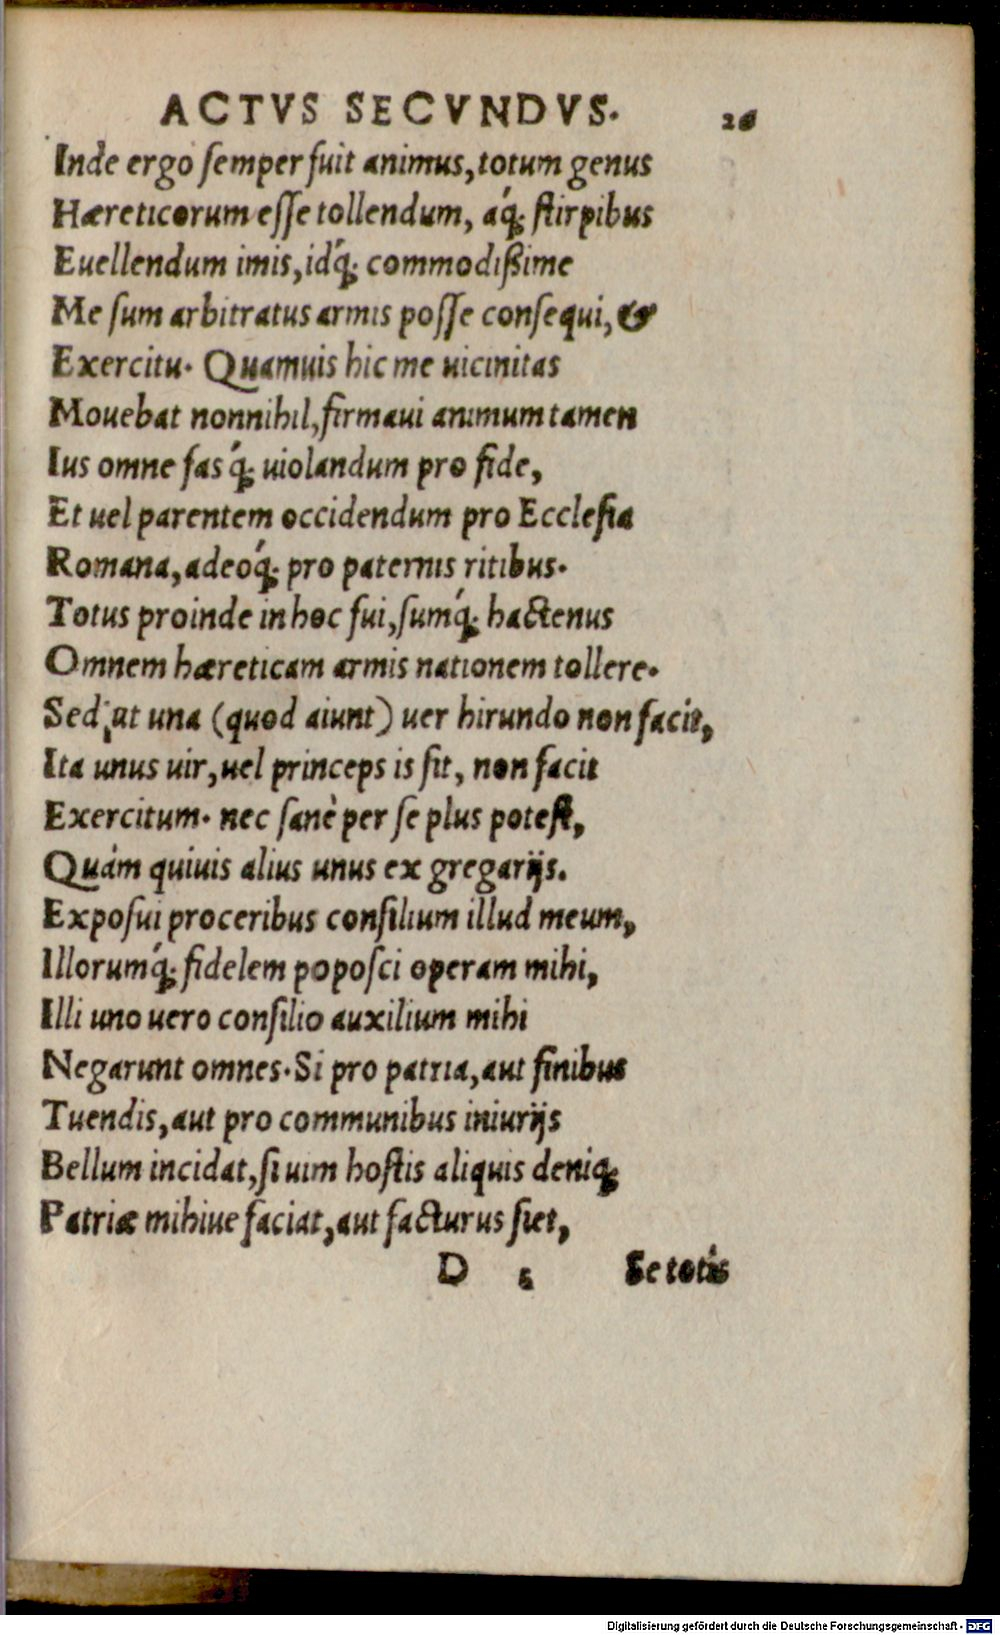 ACTVS SECVNDVS. 26
Inde ergo ſemper fuit animus, totum genus
Hæreticorum eſſe tollendum, aq́; ſtirpibus
Euellendum imis, idq́; commodißime
Me ſum arbitratus armis poſſe conſequi, &
Exercitu. Quamuis hic me uicinitas
Mouebat nonnihil, firmaui animum tamen
Ius omne fas q́; uiolandum pro fide,
Et uel parentem occidendum pro Eccleſia
Romana, adeoq́; pro paternis ritibus.
Totus proinde in hoc fui, ſumq́; hactenus
Omnem hæreticam armis nationem tollere.
Sed, ut una (quod aiunt) uer hirundo non facit,
Ita unus uir, uel princeps is ſit, non facit
Exercitum. nec ſanè per ſe plus poteſt,
Quám quiuis alius unus ex gregarijs.
Expoſui proceribus conſilium illud meum,
Illorumq́; fidelem popoſci operam mihi,
Illi uno uero conſilio auxilium mihi
Negarunt omnes. Si pro patria, aut finibus
Tuendis, aut pro communibus iniurijs
Bellum incidat, ſi uim hoſtis aliquis deniq;
Patriæ mihiue faciat, aut facturus ſiet,
D 5 Se totis
Digitalisierung gefördert durch die Deutsche Forschungsgemeinschaft - DFG